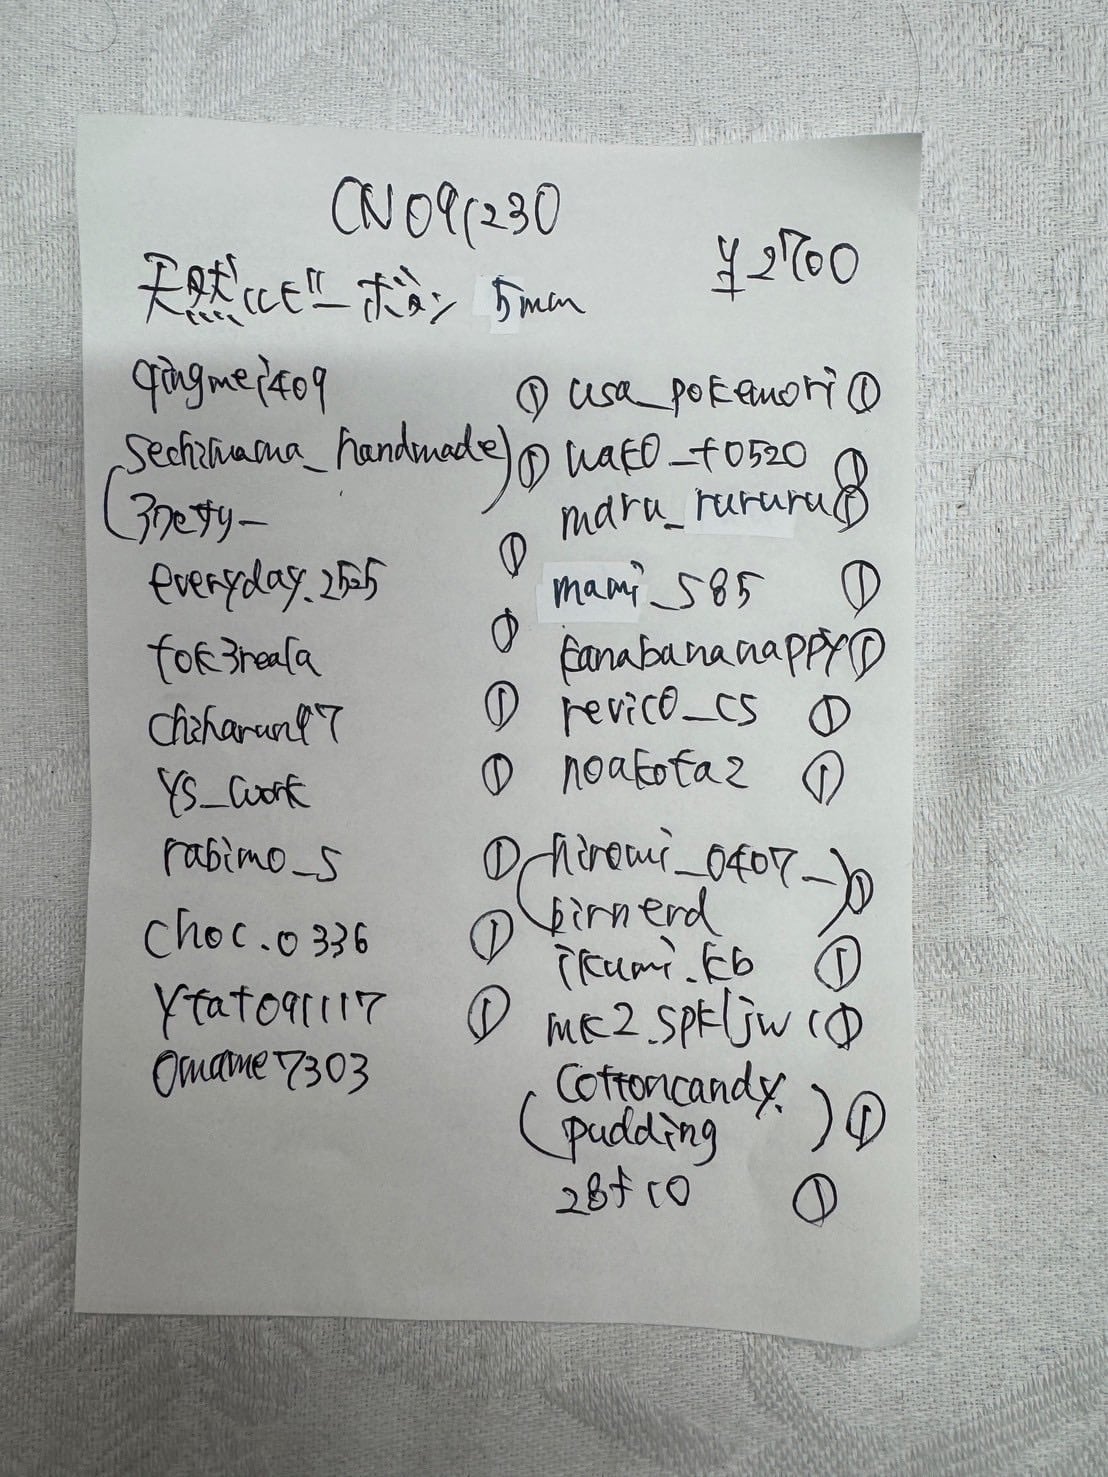 CN091230
¥2700
天然ルビーボタン 5mm
qingmei409 ①
sechizumama_handmade ①
(3nety_)
everyday.2525 ①
tok3reala ①
chiharun97 ①
ys_work ①
rabimo_s ①
choc.0336 ①
ytat091117 ①
omame7303
usa_pokemori ①
nako_t0520 ①
maru_rururu8 ①
mami_585 ①
kanabananappy ①
revico_cs ①
noakota2 ①
(hiromi_0407_
birnerd) ①
ikumi.kb ①
mk2.spkljw ①
(cottoncandy.
pudding) ①
28tc0 ①